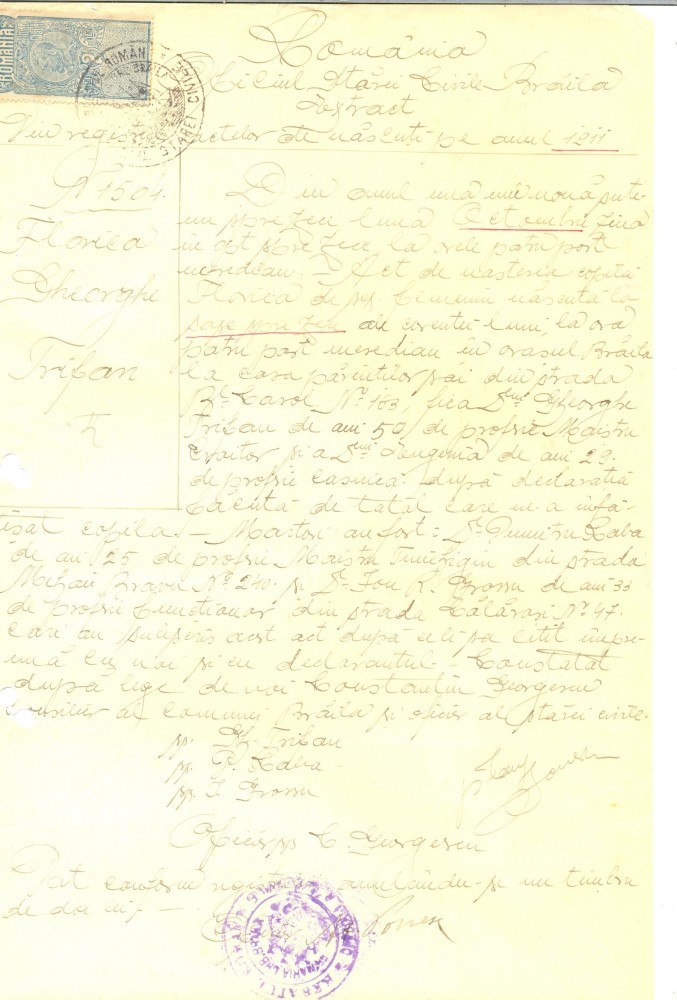 România
Oficiul Stărei Civile Brăila
Extract
Din registrul actelor de născuți pe anul 1911
N 1504.
Florica
Gheorghe
Trifan
Din anul una mie nouă sute
un spre zece luna Octombrie ziua
în opt spre zece la orele patru post
meridian. Act de nasterea copilei
Florica de sex femenin născută la
șase spre zece ale corentei luni, la ora
patru post meridian în orașul Brăila
la casa părinților săi din strada
Bd. Carol No 183, fiica Dlui Gheorghe
Trifan de ani 50 de profesie Maistru
croitor și a Dnei Eugenia de ani 29.
de profesie casnică după declaratia
făcută de tatăl care ne-a înfă-
țișat copila. Martori au fost: D. Dumitru Caba
de ani 25 de profesie Maistru Tinichigiu din strada
Mihau Bravu No 240. și D. Ion R. Grossu de ani 33
de profesie functionar din strada Călărași No 47.
cari au subscris acest act după ce li sa citit împre-
ună cu noi și cu declarantul. Constatat
după lege de noi Constantin Georgescu
consilier al comunei Brăila și oficer al stărei civile.
ss. Gh. Trifan
ss. D. Caba
ss. I. Grossu
Oficer ss C. Georgescu
Dat conform registru anulându-și un timbru
de doi lei
ROMANIA
2